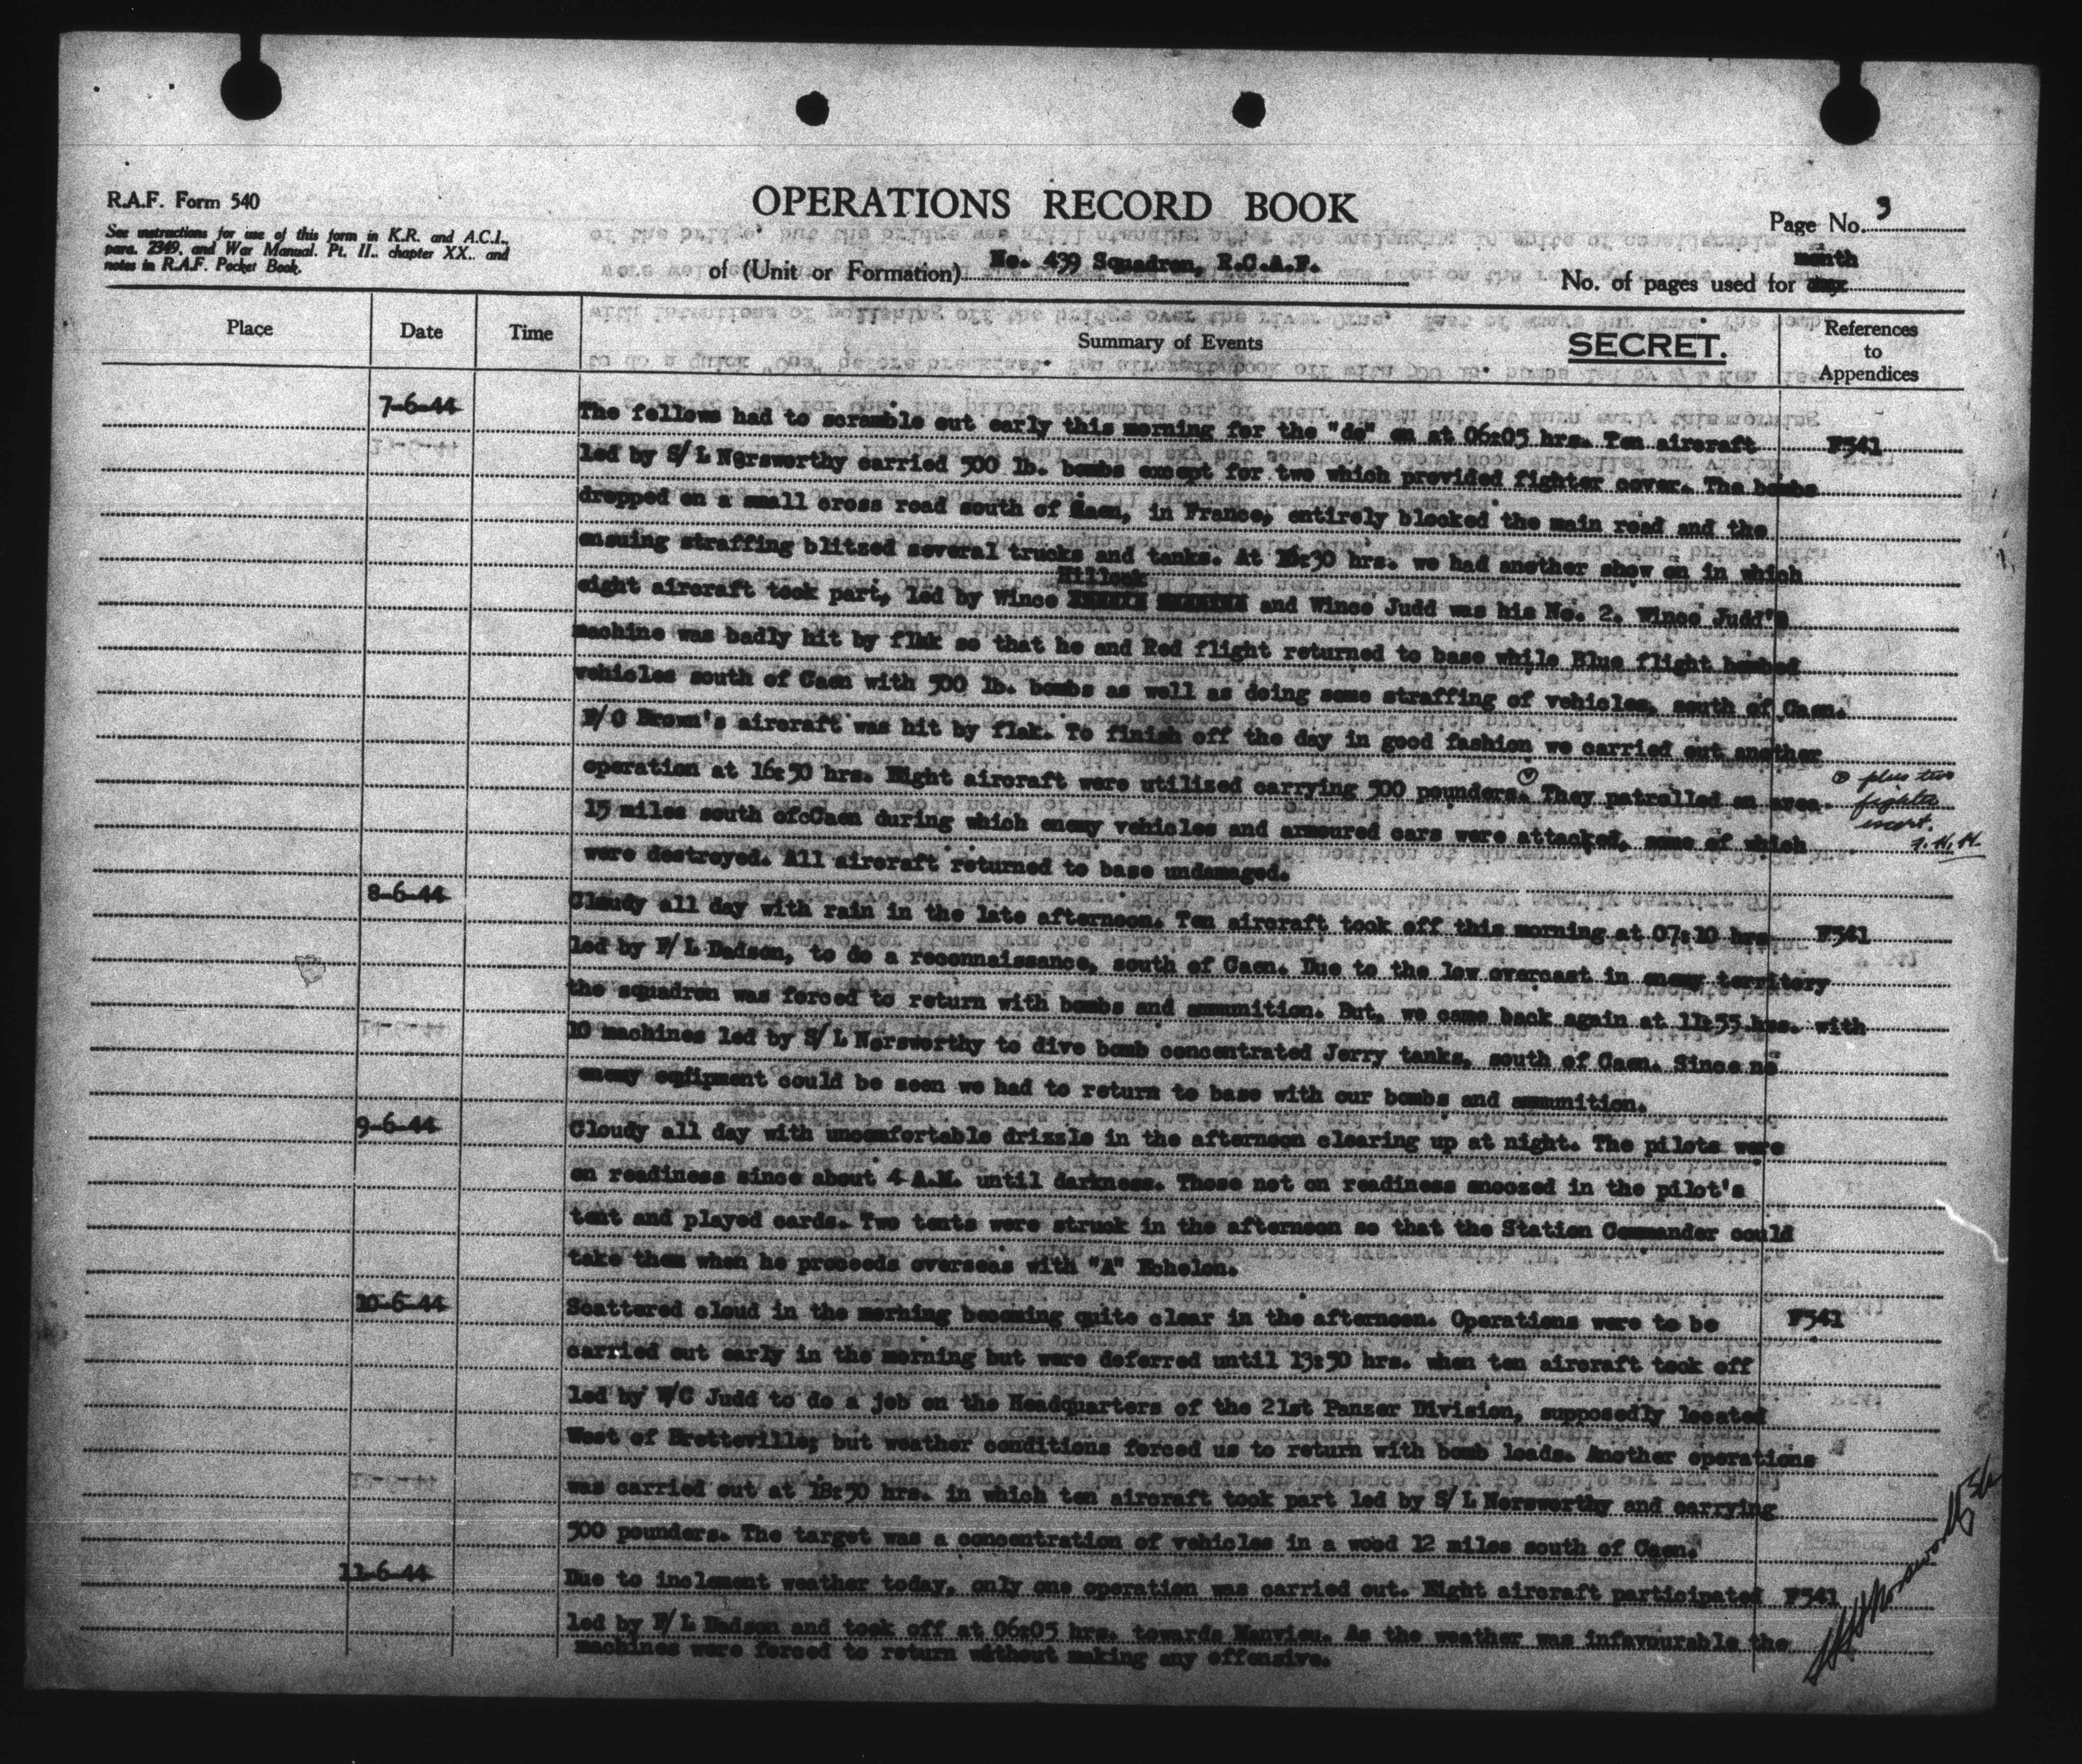 R.A.F. Form 540
See instructions for use of this form in K.R. and A.C.I.,
para. 2349, and War Manual. Pt. II., chapter XX., and
notes in R.A.F. Pocket Book.
OPERATIONS RECORD BOOK
of (Unit or Formation) No. 439 Squadron, R.C.A.F.
Page No. 3
month
No. of pages used for day
Place Date Time Summary of Events SECRET. References to Appendices
7-6-44 The fellows had to scramble out early this morning for the "do" on at 06:05 hrs. Ten aircraft F541
led by S/L Norsworthy carried 500 lb. bombs except for two which provided fighter cover. The bombs
dropped on a small cross road south of Caen, in France, entirely blocked the main road and the
ensuing straffing blitzed several trucks and tanks. At 10:30 hrs. we had another show on in which
Hillock
eight aircraft took part, led by Winco and Winco Judd was his No. 2. Winco Judd's
machine was badly hit by flak so that he and Red flight returned to base while Blue flight bombed
vehicles south of Caen with 500 lb. bombs as well as doing some straffing of vehicles, south of Caen.
F/O Brown's aircraft was hit by flak. To finish off the day in good fashion we carried out another
operation at 16:50 hrs. Eight aircraft were utilized carrying 500 pounders. They patrolled an area plus two
15 miles south of Caen during which enemy vehicles and armoured cars were attacked, some of which fighter escort.
were destroyed. All aircraft returned to base undamaged.
8-6-44 Cloudy all day with rain in the late afternoon. Ten aircraft took off this morning at 07:10 hrs F541
led by F/L Dadson, to do a reconnaissance, south of Caen. Due to the low overcast in enemy territory
the squadron was forced to return with bombs and ammunition. But, we came back again at 11:55 hrs. with
10 machines led by S/L Norsworthy to dive bomb concentrated Jerry tanks, south of Caen. Since no
enemy equipment could be seen we had to return to base with our bombs and ammunition.
9-6-44 Cloudy all day with uncomfortable drizzle in the afternoon clearing up at night. The pilots were
on readiness since about 4 A.M. until darkness. Those not on readiness snoozed in the pilot's
tent and played cards. Two tents were struck in the afternoon so that the Station Commander could
take them when he proceeds overseas with "A" Echelon.
10-6-44 Scattered cloud in the morning becoming quite clear in the afternoon. Operations were to be F541
carried out early in the morning but were deferred until 13:50 hrs. when ten aircraft took off
led by W/C Judd to do a job on the Headquarters of the 21st Panzer Division, supposedly located
West of Bretteville; but weather conditions forced us to return with bomb loads. Another operations
was carried out at 18:50 hrs. in which ten aircraft took part led by S/L Norsworthy and carrying
500 pounders. The target was a concentration of vehicles in a wood 12 miles south of Caen.
11-6-44 Due to inclement weather today, only one operation was carried out. Eight aircraft participated F541
led by F/L Dadson and took off at 06:05 hrs. towards Manvieu. As the weather was infavourable the
machines were forced to return without making any offensive.